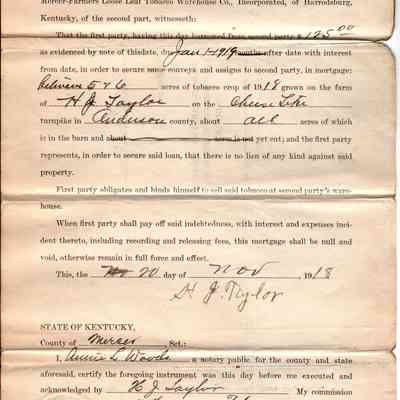 Mercer-Farmers Loose Leaf Tobacco Warehouse Co., Incorporated, of Harrodsburg,
Kentucky, of the second part, witnesseth:
That the first party, having this day borrowed from second party $ 125.00
as evidenced by note of this date, due Jan 1-1919 months after date with interest
from date, in order to secure same conveys and assigns to second party, in mortgage:
Between 5 & 6 acres of tobacco crop of 1918 grown on the farm
of H J Taylor on the
turnpike in Anderson county, about all acres of which
is in the barn and about acres is not yet cut; and the first party
represents, in order to secure said loan, that there is no lien of any kind against said
property.
First party obligates and binds himself to sell said tobacco at second party's ware-
house.
When first party shall pay off said indebtedness, with interest and expenses inci-
dent thereto, including recording and releasing fees, this mortgage shall be null and
void, otherwise remain in full force and effect.
This, the 20 day of Nov, 1918
H. J. Taylor
STATE OF KENTUCKY,
County of Mercer Sct.:
I, Annie L Woods a notary public for the county and state
aforesaid, certify the foregoing instrument was this day before me executed and
acknowledged by H J Taylor My commission